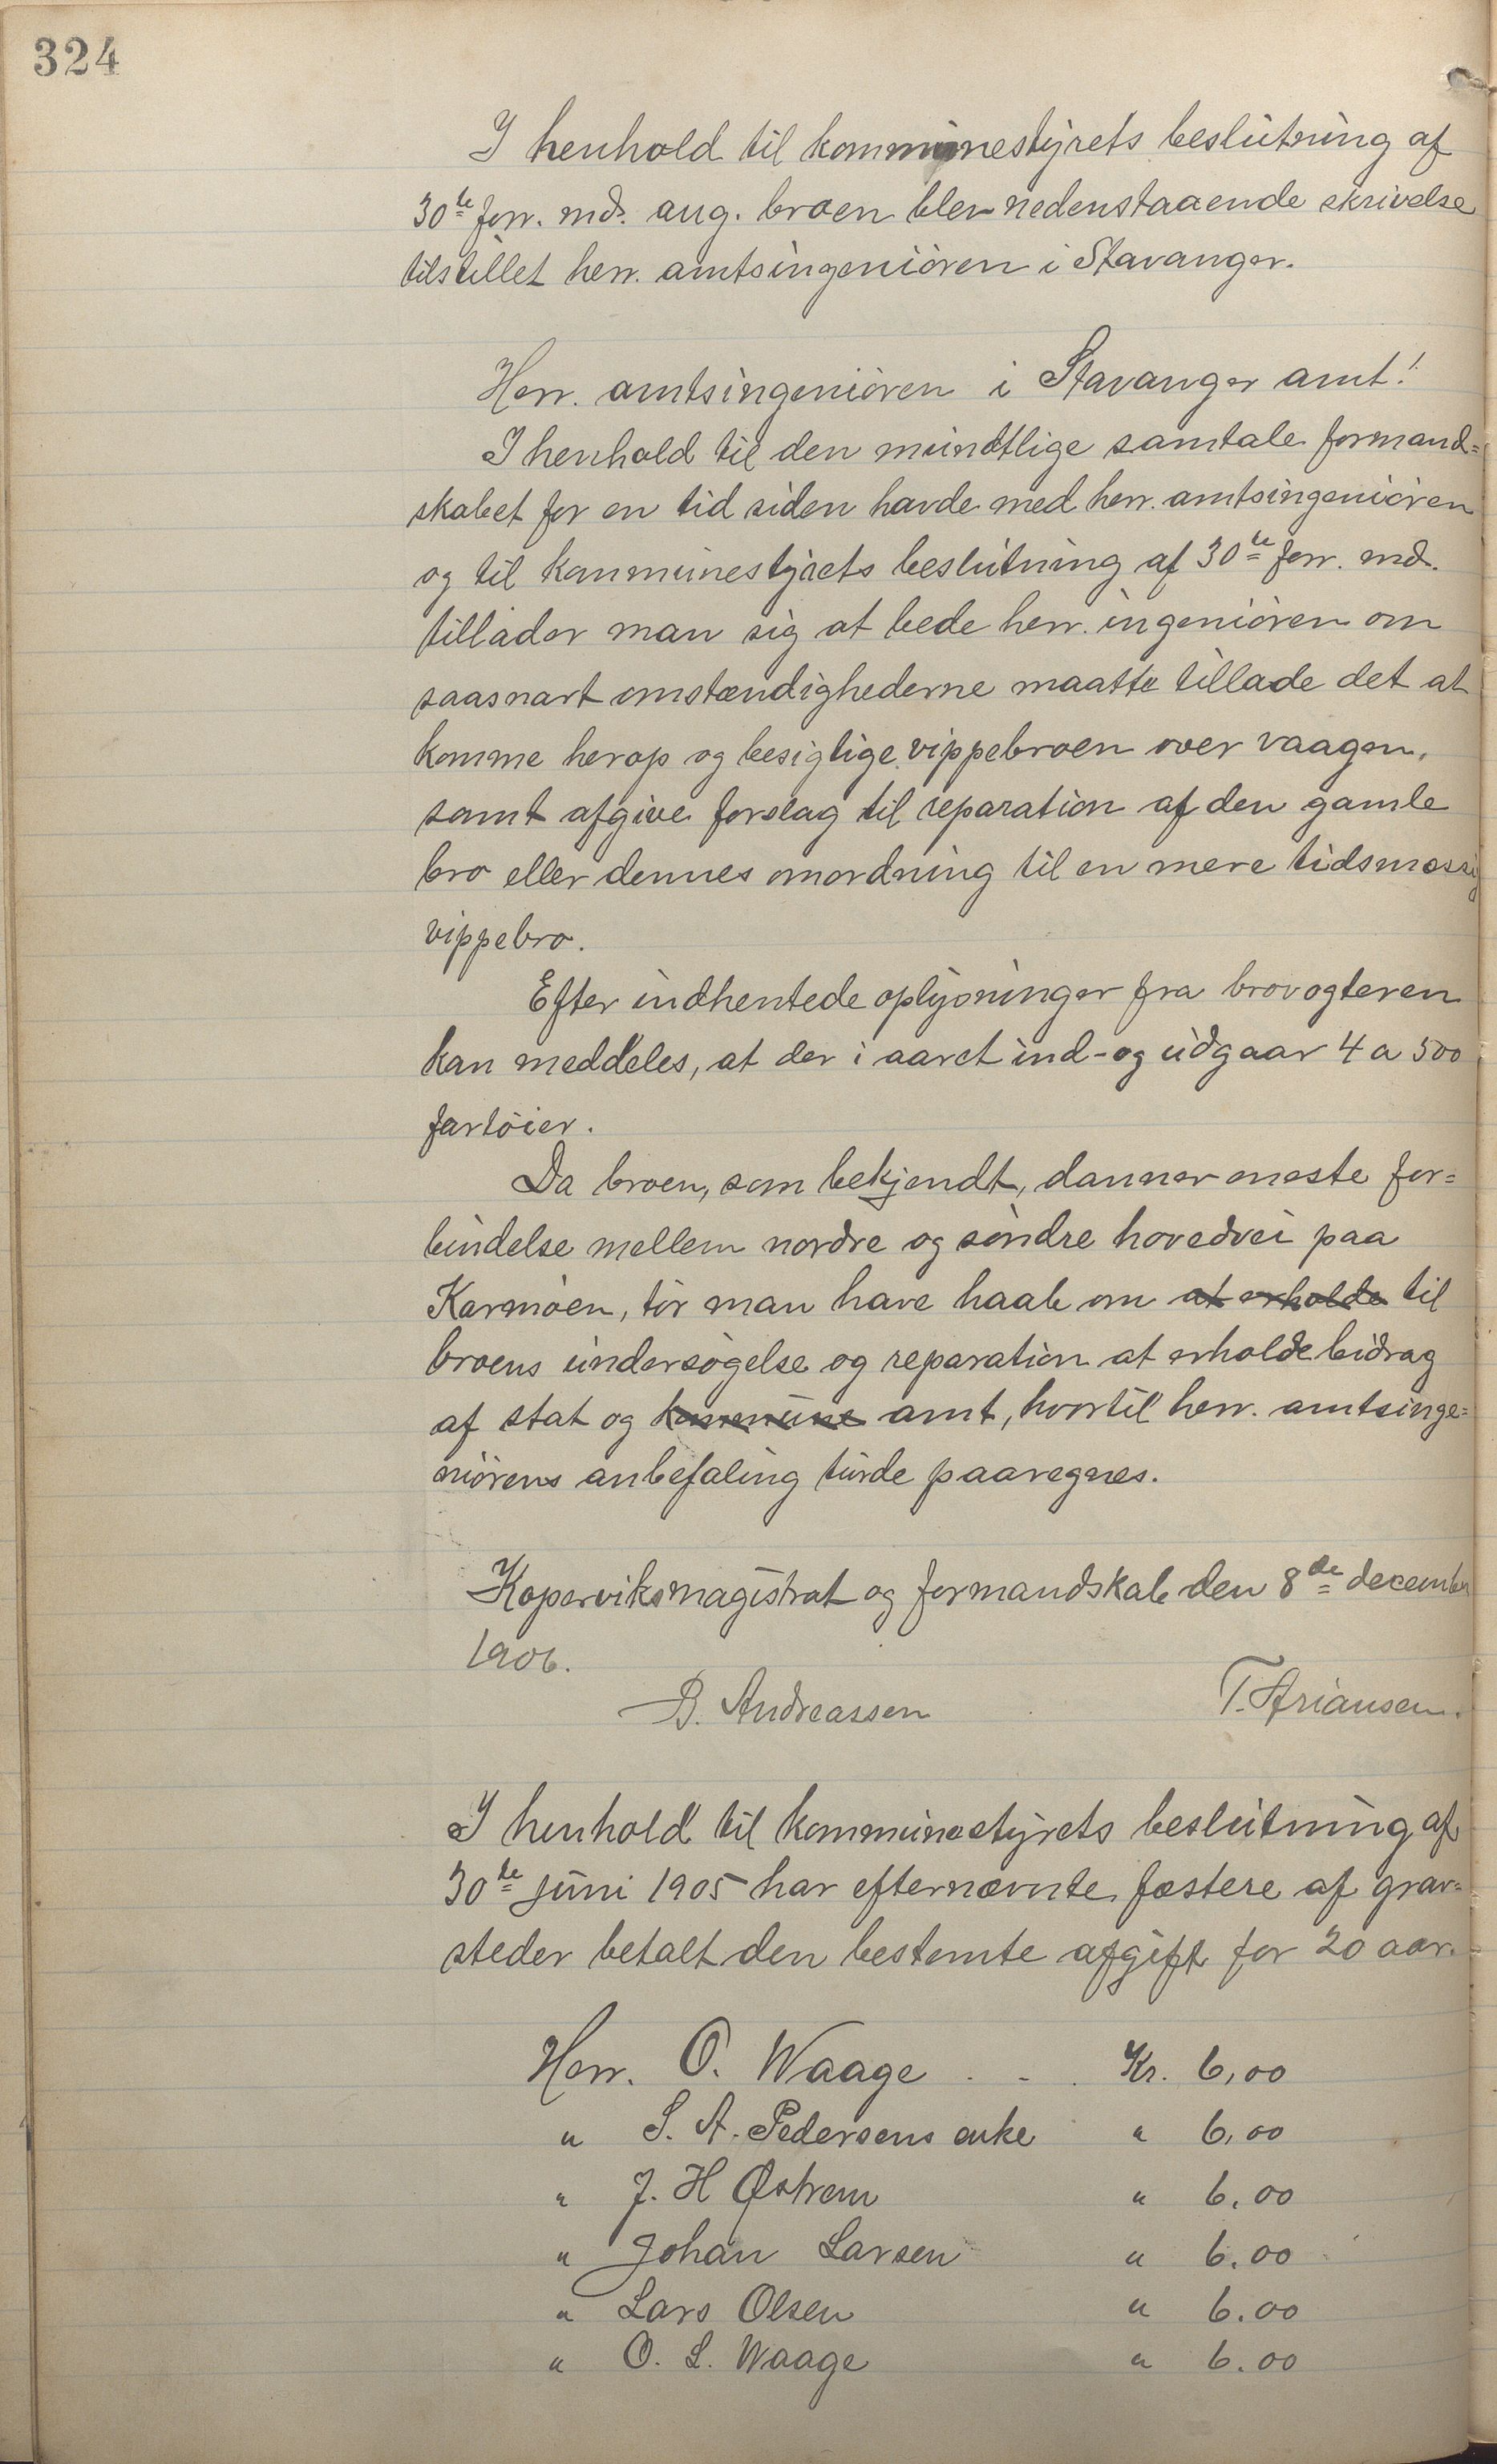 324
I henhold til kommunestyrets beslutning af
30te forr. md. ang. broen blev nedenstaaende skrivelse
tilstillet herr. amtsingeniøren i Stavanger.
Herr. amtsingeniøren i Stavanger amt!
I henhold til den mundtlige samtale formand=
skabet for en tid siden havde med herr. amtsingeniøren
og til kommunestyrets beslutning af 30te forr. md.
tillader man sig at bede herr. ingeniøren om
saasnart omstændighederne maatte tillade det at
komme herop og besigtige vippebroen over vaagen,
samt afgive forslag til reparation af den gamle
bro eller dennes omordning til en mere tidsmæssig
vippebro.
Efter indhentede oplysninger fra brovogteren
kan meddeles, at der i aaret ind- og udgaar 4 a 500
fartøier.
Da broen, som bekjendt, danner eneste for=
bindelse mellem nordre og søndre hovedvei paa
Karmøen, tør man have haab om at erholde til
broens undersøgelse og reparation at erholde bidrag
af stat og kommune amt, hvortil herr. amtsinge=
niørens anbefaling turde paaregnes.
Koperviks magistrat og formandskab den 8de december
1906.
B. Andreassen T. Ariansen.
I henhold til kommunestyrets beslutning af
30te juni 1905 har efternævnte fæstere af grav=
steder betalt den bestemte afgift for 20 aar.
Herr. O. Waage . - . Kr. 6,00
" S. A. Pedersens enke " 6,00
" J. H Østrem " 6.00
" Johan Larsen " 6.00
" Lars Olsen " 6.00
" O. L. Waage " 6.00